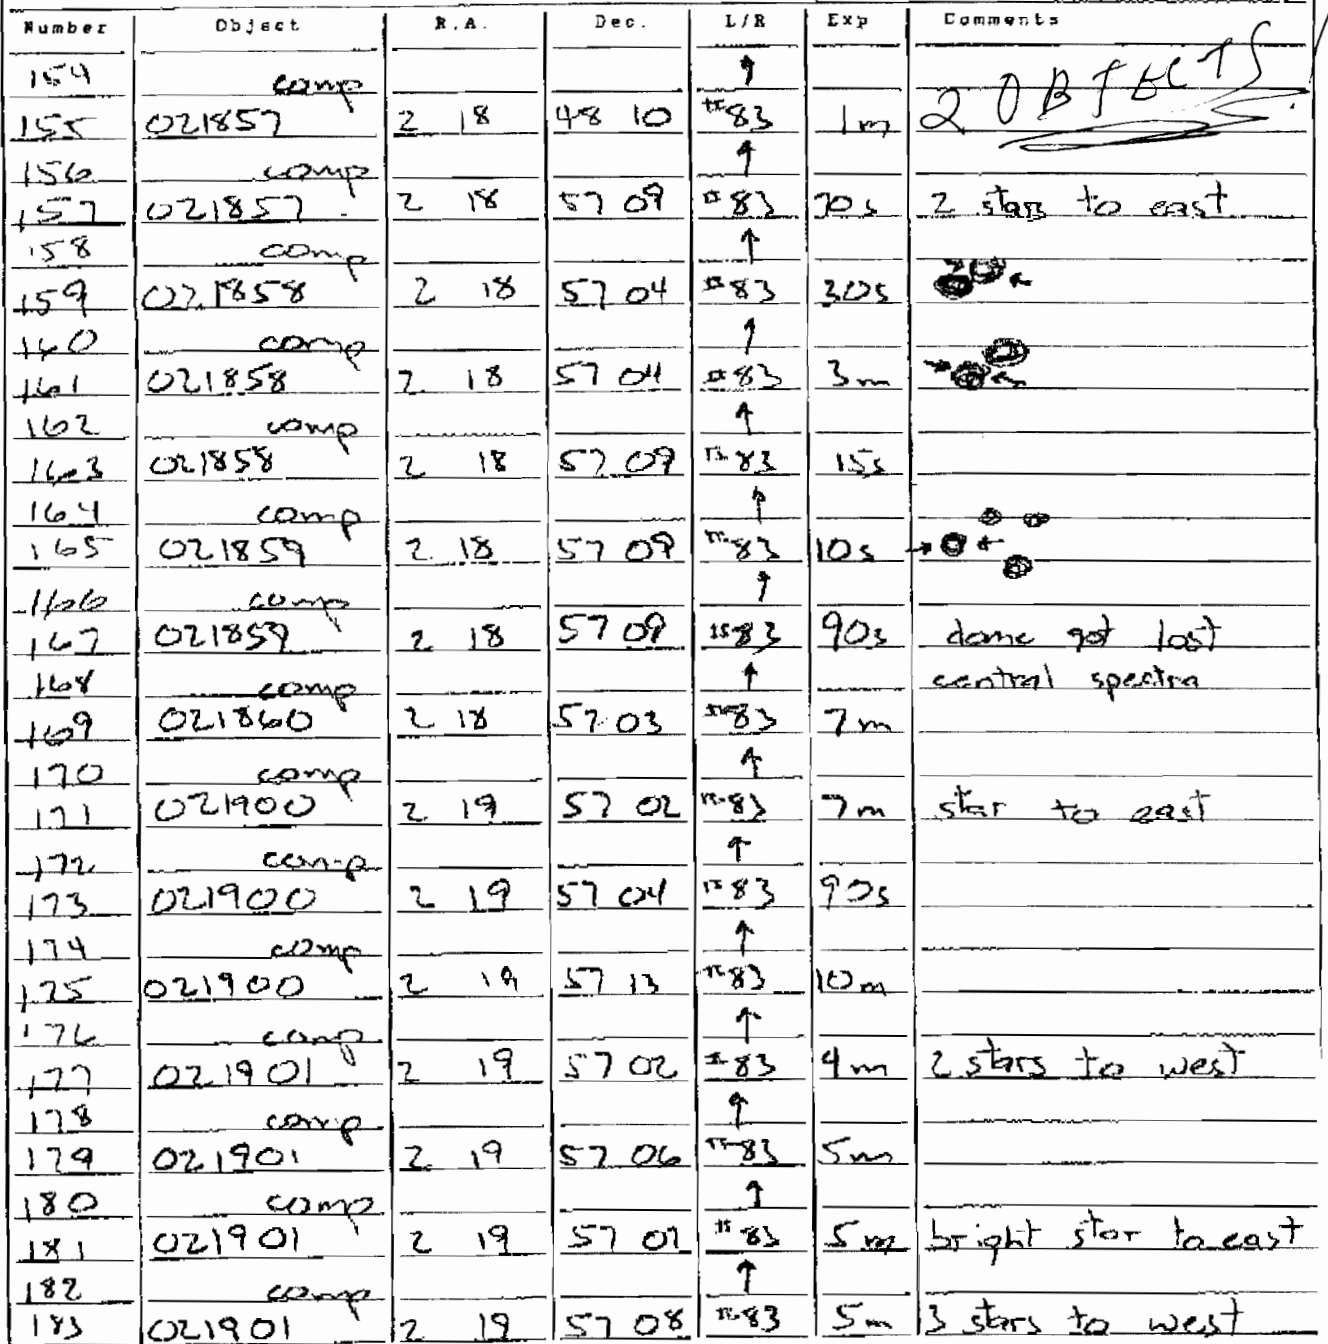 Number Object R.A. Dec. L/R Exp Comments
154 comp ↑
155 021857 2 18 48 10 83 1m 2 OBJECTS
156 comp ↑
157 021857 2 18 57 09 83 30s 2 stars to east
158 comp ↑
159 021858 2 18 57 04 83 30s
160 comp ↑
161 021858 2 18 57 04 83 3m
162 comp ↑
163 021858 2 18 57 09 83 15s
164 comp ↑
165 021859 2 18 57 09 83 10s
166 comp ↑
167 021859 2 18 57 09 83 90s dome got lost
168 comp ↑ central spectra
169 021860 2 18 57 03 83 7m
170 comp ↑
171 021900 2 19 57 02 83 7m star to east
172 comp ↑
173 021900 2 19 57 04 83 90s
174 comp ↑
175 021900 2 19 57 13 83 10m
176 comp ↑
177 021901 2 19 57 02 83 4m 2 stars to west
178 comp ↑
179 021901 2 19 57 06 83 5m
180 comp ↑
181 021901 2 19 57 83 5m bright star to east
182 comp ↑
183 021901 2 19 57 08 83 5m 3 stars to west